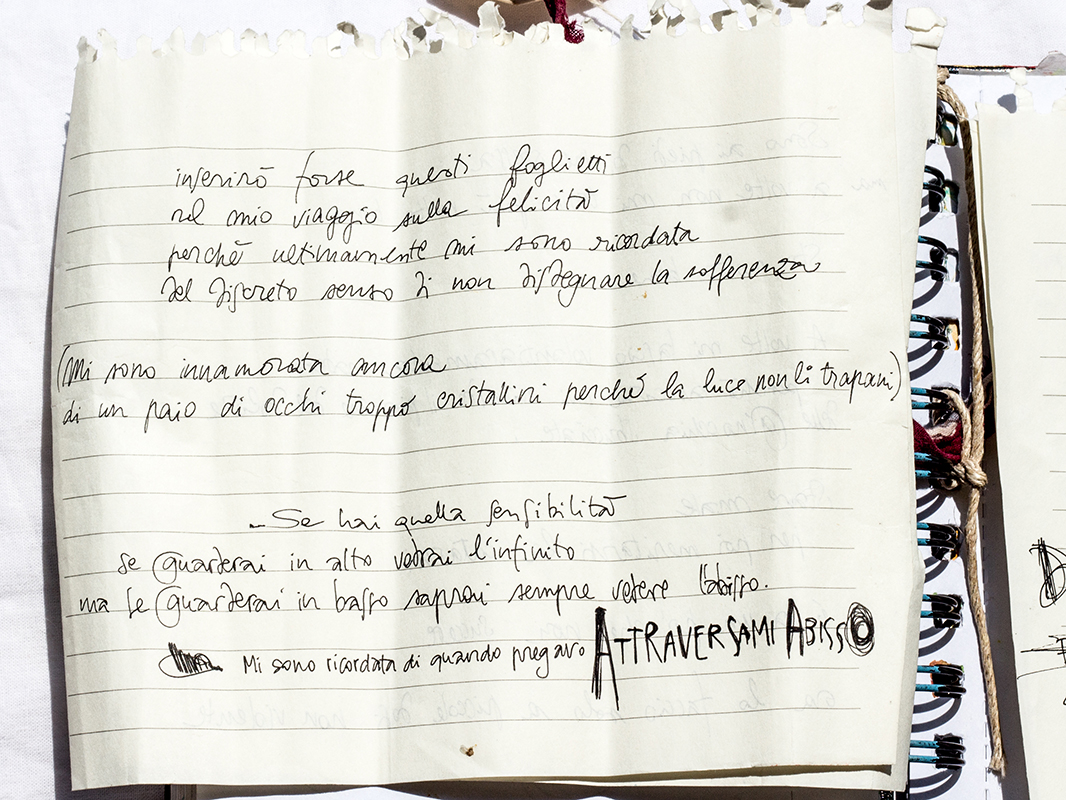 inserirò forse questi foglietti
nel mio viaggio sulla felicità
perchè ultimamente mi sono ricordata
del discreto senso di non disdegnare la sofferenza
(mi sono innamorata ancora
di un paio di occhi troppo cristallini perchè la luce non li trapani)
...Se hai quella sensibilità
se guarderai in alto vedrai l'infinito
ma se guarderai in basso saprai sempre vedere l'abisso.
Mi sono ricordata di quando pregavo ATTRAVERSAMI ABISSO